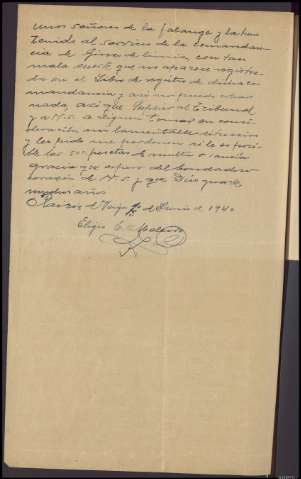 unos señores de la falange y la han
tenido al servicio de la comandan
cia de
mala suerte que no aparece registra
do en el Libro de registro de dicha co
mandancia y así no puede
nada, así que Suplico al Tribunal
y a V.S. se dignen tomar en consi
deración mi lamentable situación
y les pido me perdonen si es posi
ble las 500 pesetas de multa
gracia que espero del bondadoso
corazón de V.S. y que Dios guarde
muchos años
de Junio de 1940
Eligio